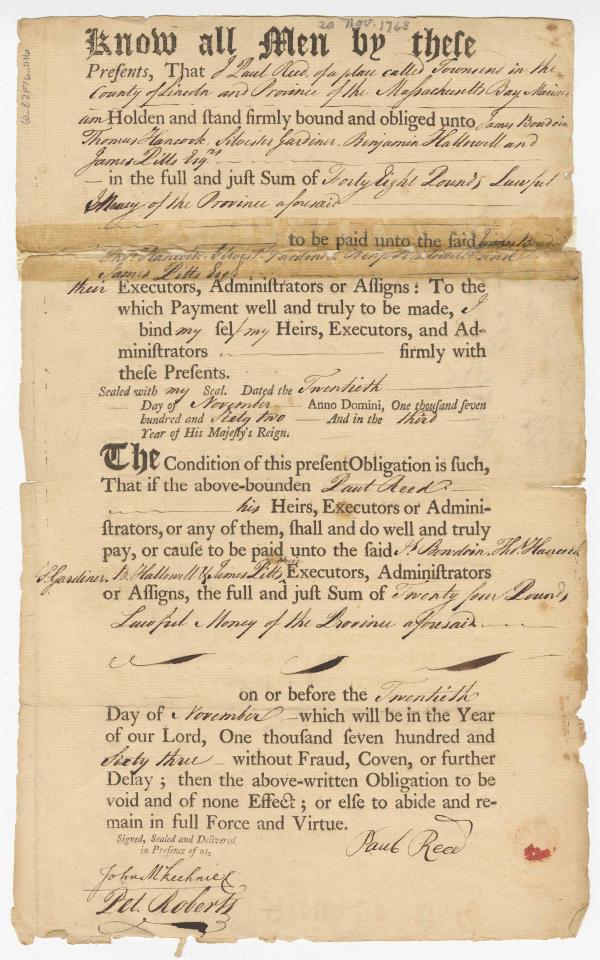 20 Nov. 1763
Know all Men by theſe
Preſents, That I Paul Reed, of a place called Townsend in the
County of Lincoln and Province of the Massachusetts Bay, Mariner
am Holden and ſtand firmly bound and obliged unto James Bowdoin
Thomas Hancock, Silvester Gardiner, Benjamin Hallowell and
James Pitts Esqrs
in the full and juſt Sum of Forty Eight Pounds Lawful
Money of the Province aforesaid
to be paid unto the said James Bowdoin
Thos Hancock, Silvesr Gardiner, Benj Hallowell and
James Pitts Esqs
their Executors, Adminiſtrators or Aſſigns: To the
which Payment well and truly to be made, I
bind my ſelf my Heirs, Executors, and Ad-
miniſtrators firmly with
theſe Preſents.
Sealed with my Seal. Dated the Twentieth
Day of November Anno Domini, One thouſand ſeven
hundred and Sixty two And in the third
Year of His Majeſty's Reign.
The Condition of this preſent Obligation is ſuch,
That if the above-bounden Paul Reed
his Heirs, Executors or Admini-
ſtrators, or any of them, ſhall and do well and truly
pay, or cauſe to be paid unto the ſaid Js Bowdoin, Thos Hancock
S. Gardiner, B. Hallowell & James Pitts their Executors, Adminiſtrators
or Aſſigns, the full and juſt Sum of Twenty four Pounds
Lawful Money of the Province aforesaid
on or before the Twentieth
Day of November which will be in the Year
of our Lord, One thouſand ſeven hundred and
Sixty three without Fraud, Coven, or further
Delay; then the above-written Obligation to be
void and of none Effect; or elſe to abide and re-
main in full Force and Virtue.
Signed, Sealed and Delivered
in Preſence of us,
Paul Reed
John McKechnie
Pet. Roberts